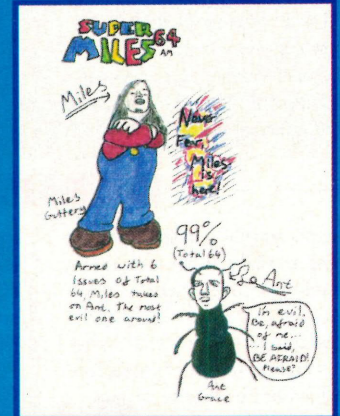 SUPER
MILES 64
AM
Miles
Never
Fear,
Miles
is
here!
Miles
Guttery
99%
(Total 64)
Armed with 6
Issues of Total
64, Miles takes
on Ant. The most
evil one around!
Le Ant
I'm evil.
Be, afraid
of me...
...I said,
BE AFRAID!
Please?
Ant
Grace